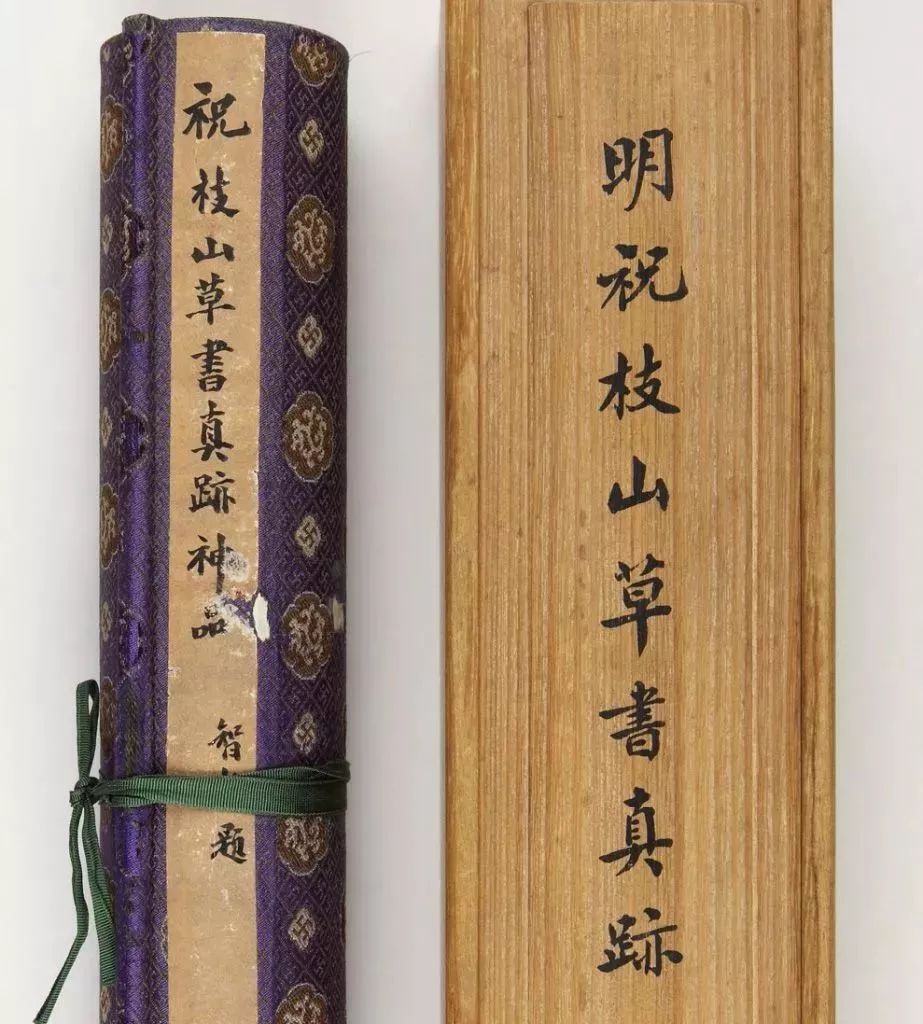 祝枝山草書真跡神品
智
題
明祝枝山草書真跡